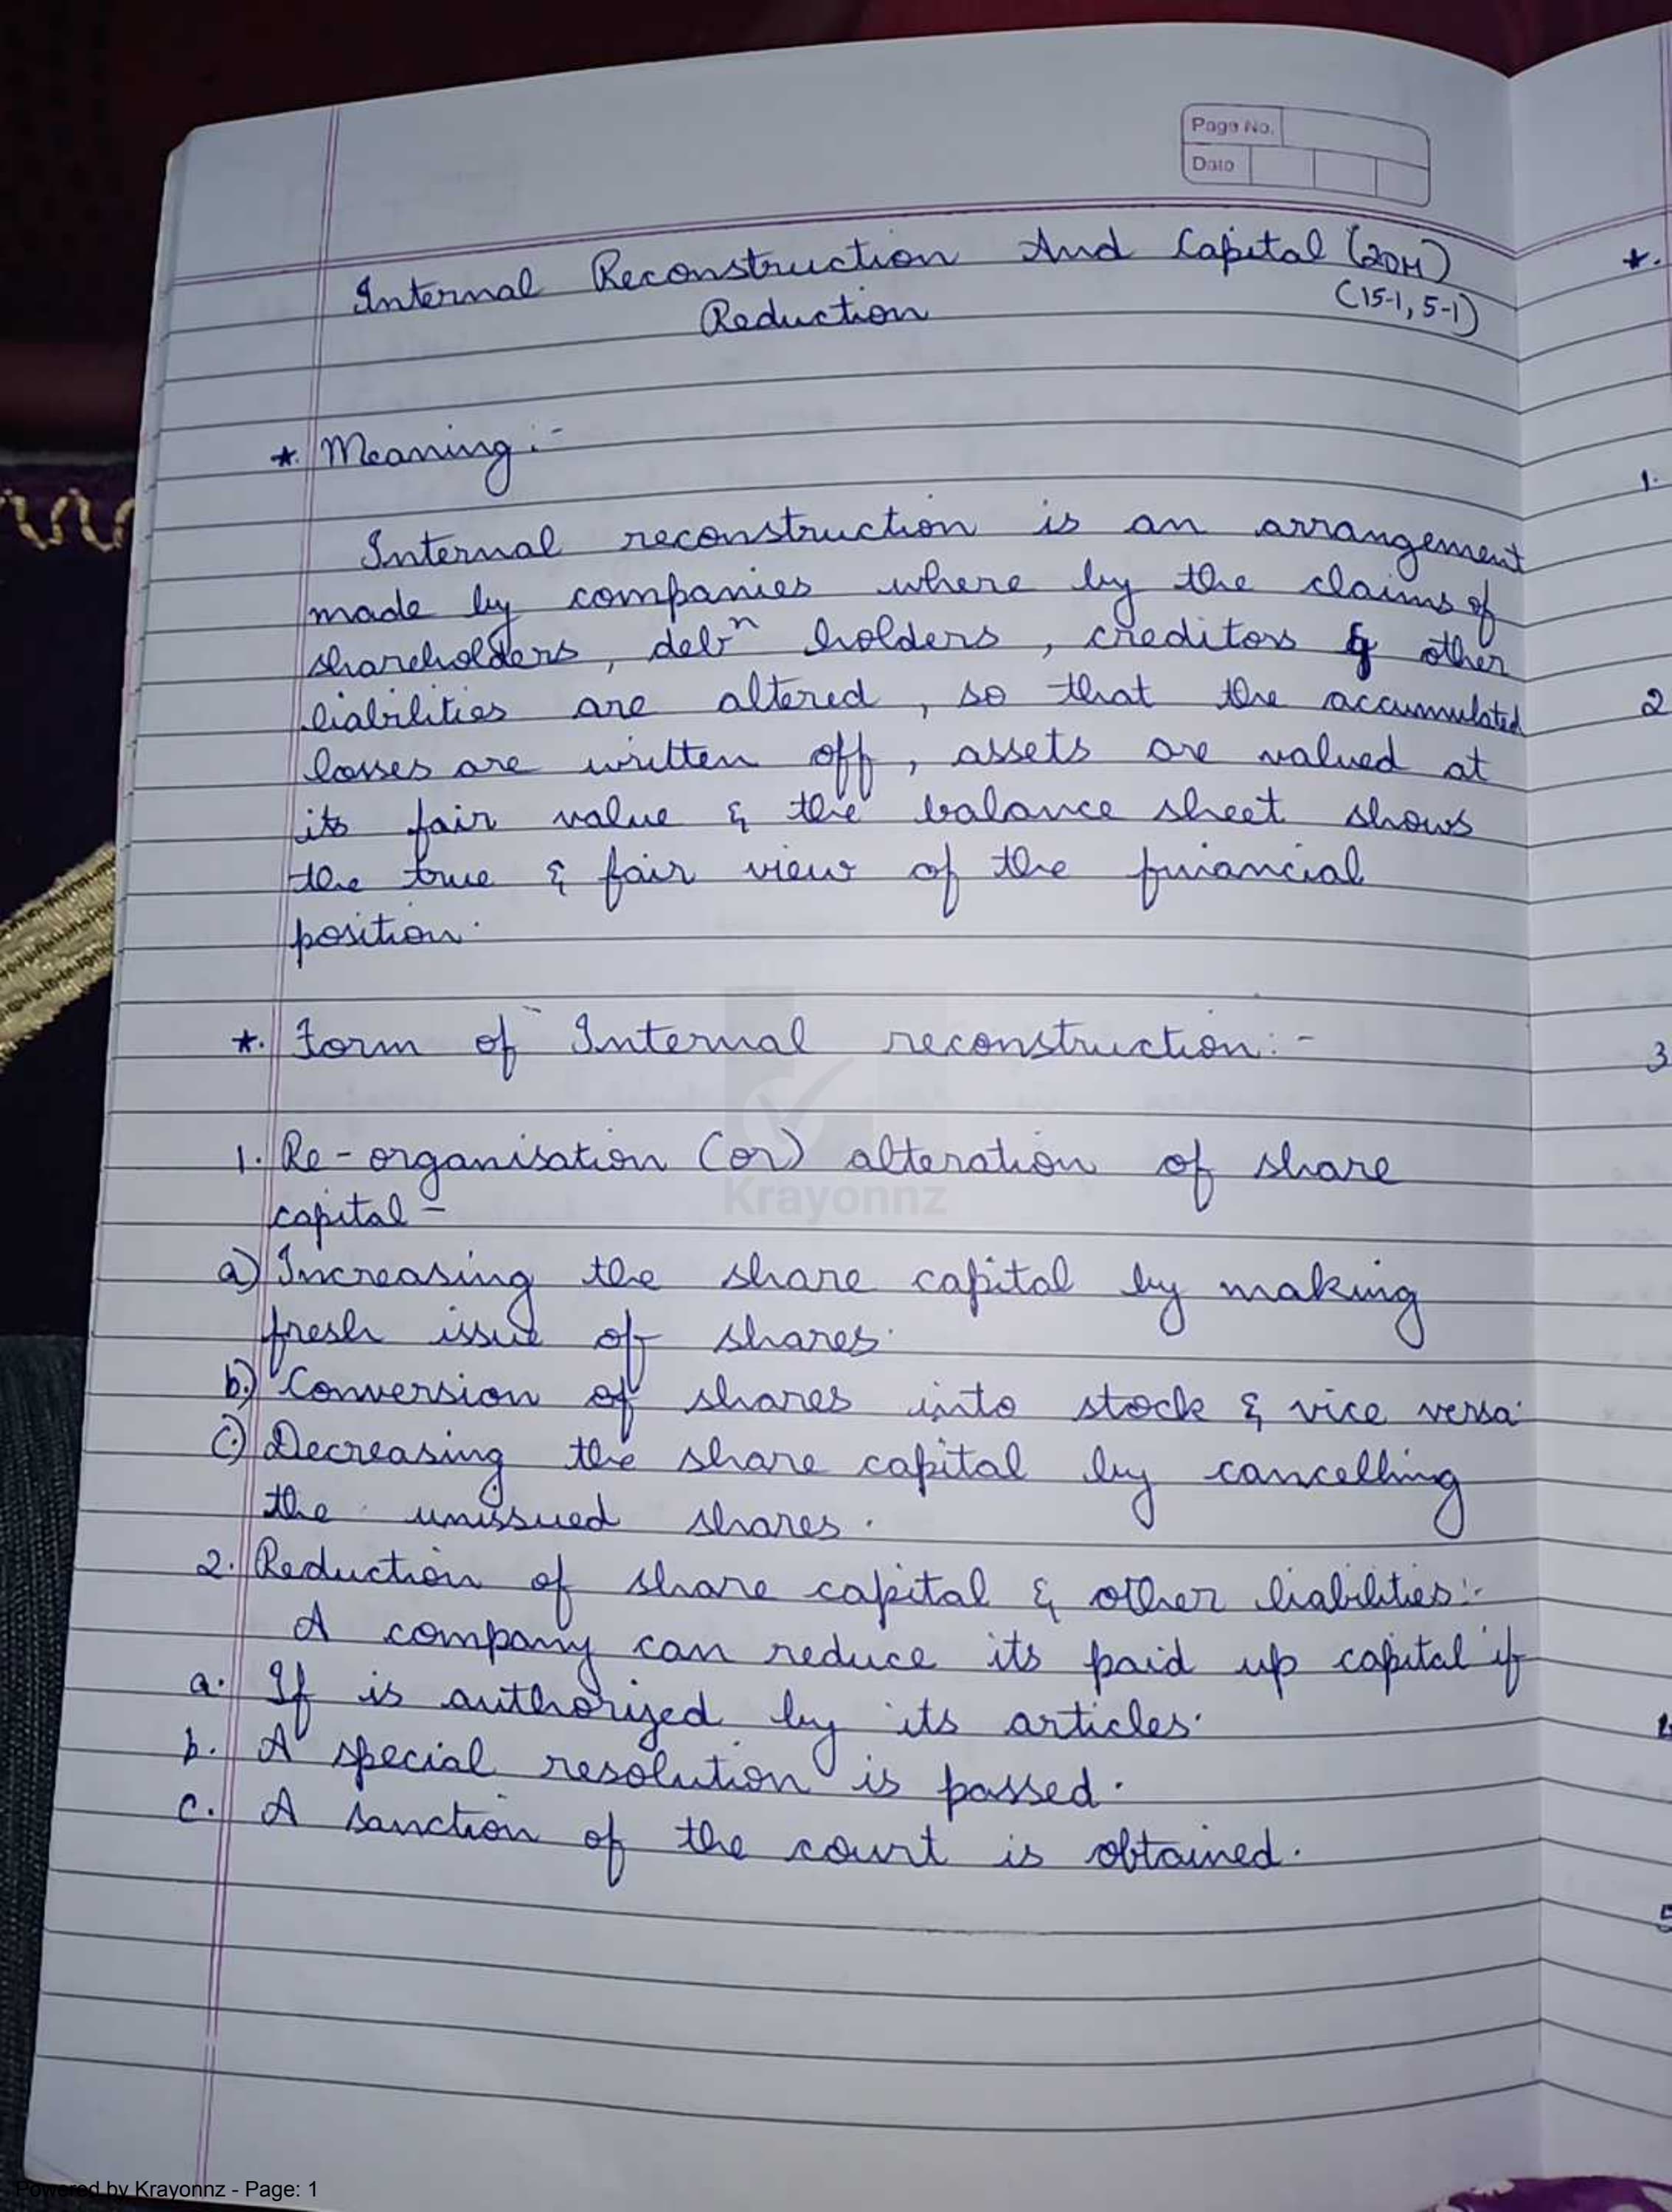 Page No.
Date
Internal Reconstruction And Capital (20M)
Reduction (15-1, 5-1)
*. Meaning :-
Internal reconstruction is an arrangement
made by companies where by the claims of
shareholders, debⁿ holders, creditors & other
liabilities are altered, so that the accumulated
losses are written off, assets are valued at
its fair value & the balance sheet shows
the true & fair view of the financial
position.
*. Form of Internal reconstruction:-
1. Re-organisation (or) alteration of share
capital -
a) Increasing the share capital by making
fresh issue of shares.
b.) Conversion of shares into stock & vice versa.
c.) Decreasing the share capital by cancelling
the unissued shares.
2. Reduction of share capital & other liabilities:-
A company can reduce its paid up capital if
a. If is authorized by its articles.
b. A special resolution is passed.
c. A sanction of the court is obtained.
*.
1.
2
3
5
Krayonnz
Powered by Krayonnz - Page: 1